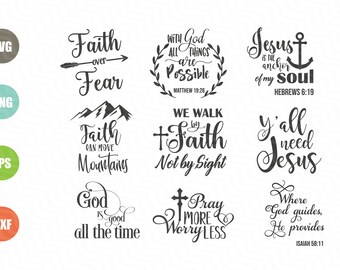 VG
NG
PS
XF
Faith
over
Fear
WITH God
ALL
THINGS
ARE
Possible
MATTHEW 19:26
Jesus
IS THE
anchor
of my soul
HEBREWS 6:19
Faith
CAN MOVE
Mountains
WE WALK
by
Faith
Not by Sight
Y'all
need
Jesus
God
is good
all the time
Pray
MORE
Worry LESS
Where
God guides,
He provides
ISAIAH 58:11